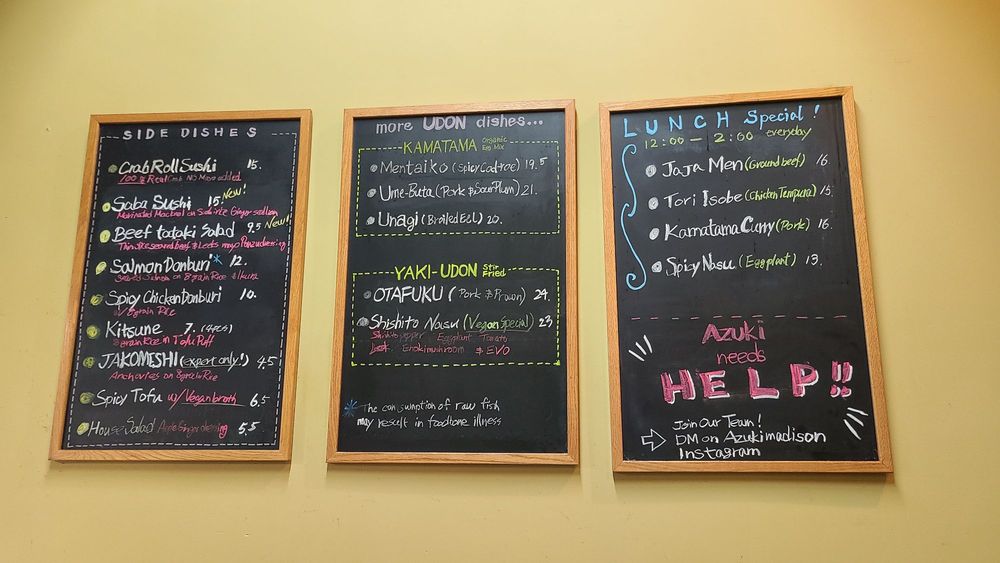 SIDE DISHES
Crab Roll Sushi 15.
100% Real Crab NO Mayo added
Saba Sushi 15. New!
Marinated Mackerel on Sushi rice Ginger scallion
Beef tataki Salad 9.5 New!
Thin slice seared beef & Leeks mayo Ponzu dressing
Salmon Donburi* 12.
Salmon on 8 grain Rice Ikura
Spicy Chicken Donburi 10.
8 grain Rice
Kitsune 7. (4pcs)
8 grain Rice in Tofu Puff
JAKOMESHI (expert only!) 4.5
Anchovies on 8 grain Rice
Spicy Tofu w/ Vegan broth 6.5
House Salad Apple Ginger dressing 5.5
more UDON dishes...
KAMATAMA Organic Egg Mix
Mentaiko (Spicy Cod roe) 19.5
Ume-Buta (Pork & Sour Plum) 21.
Unagi (Broiled EEL) 20.
YAKI-UDON Stir Fried
OTAFUKU (Pork & Prawn) 24.
Shishito Nasu (Vegan Special) 23
Shishito pepper Eggplant Tomato
Enoki mushroom & EVO
* The consumption of raw fish
may result in foodborne illness
LUNCH Special!
12:00 - 2:00 everyday
JaJa Men (Ground beef) 16.
Tori Isobe (Chicken Tempura) 15.
Kamatama Curry (Pork) 16.
Spicy Nasu (Eggplant) 13.
Azuki
needs
HELP!!
Join Our Team!
DM on Azukimadison
Instagram